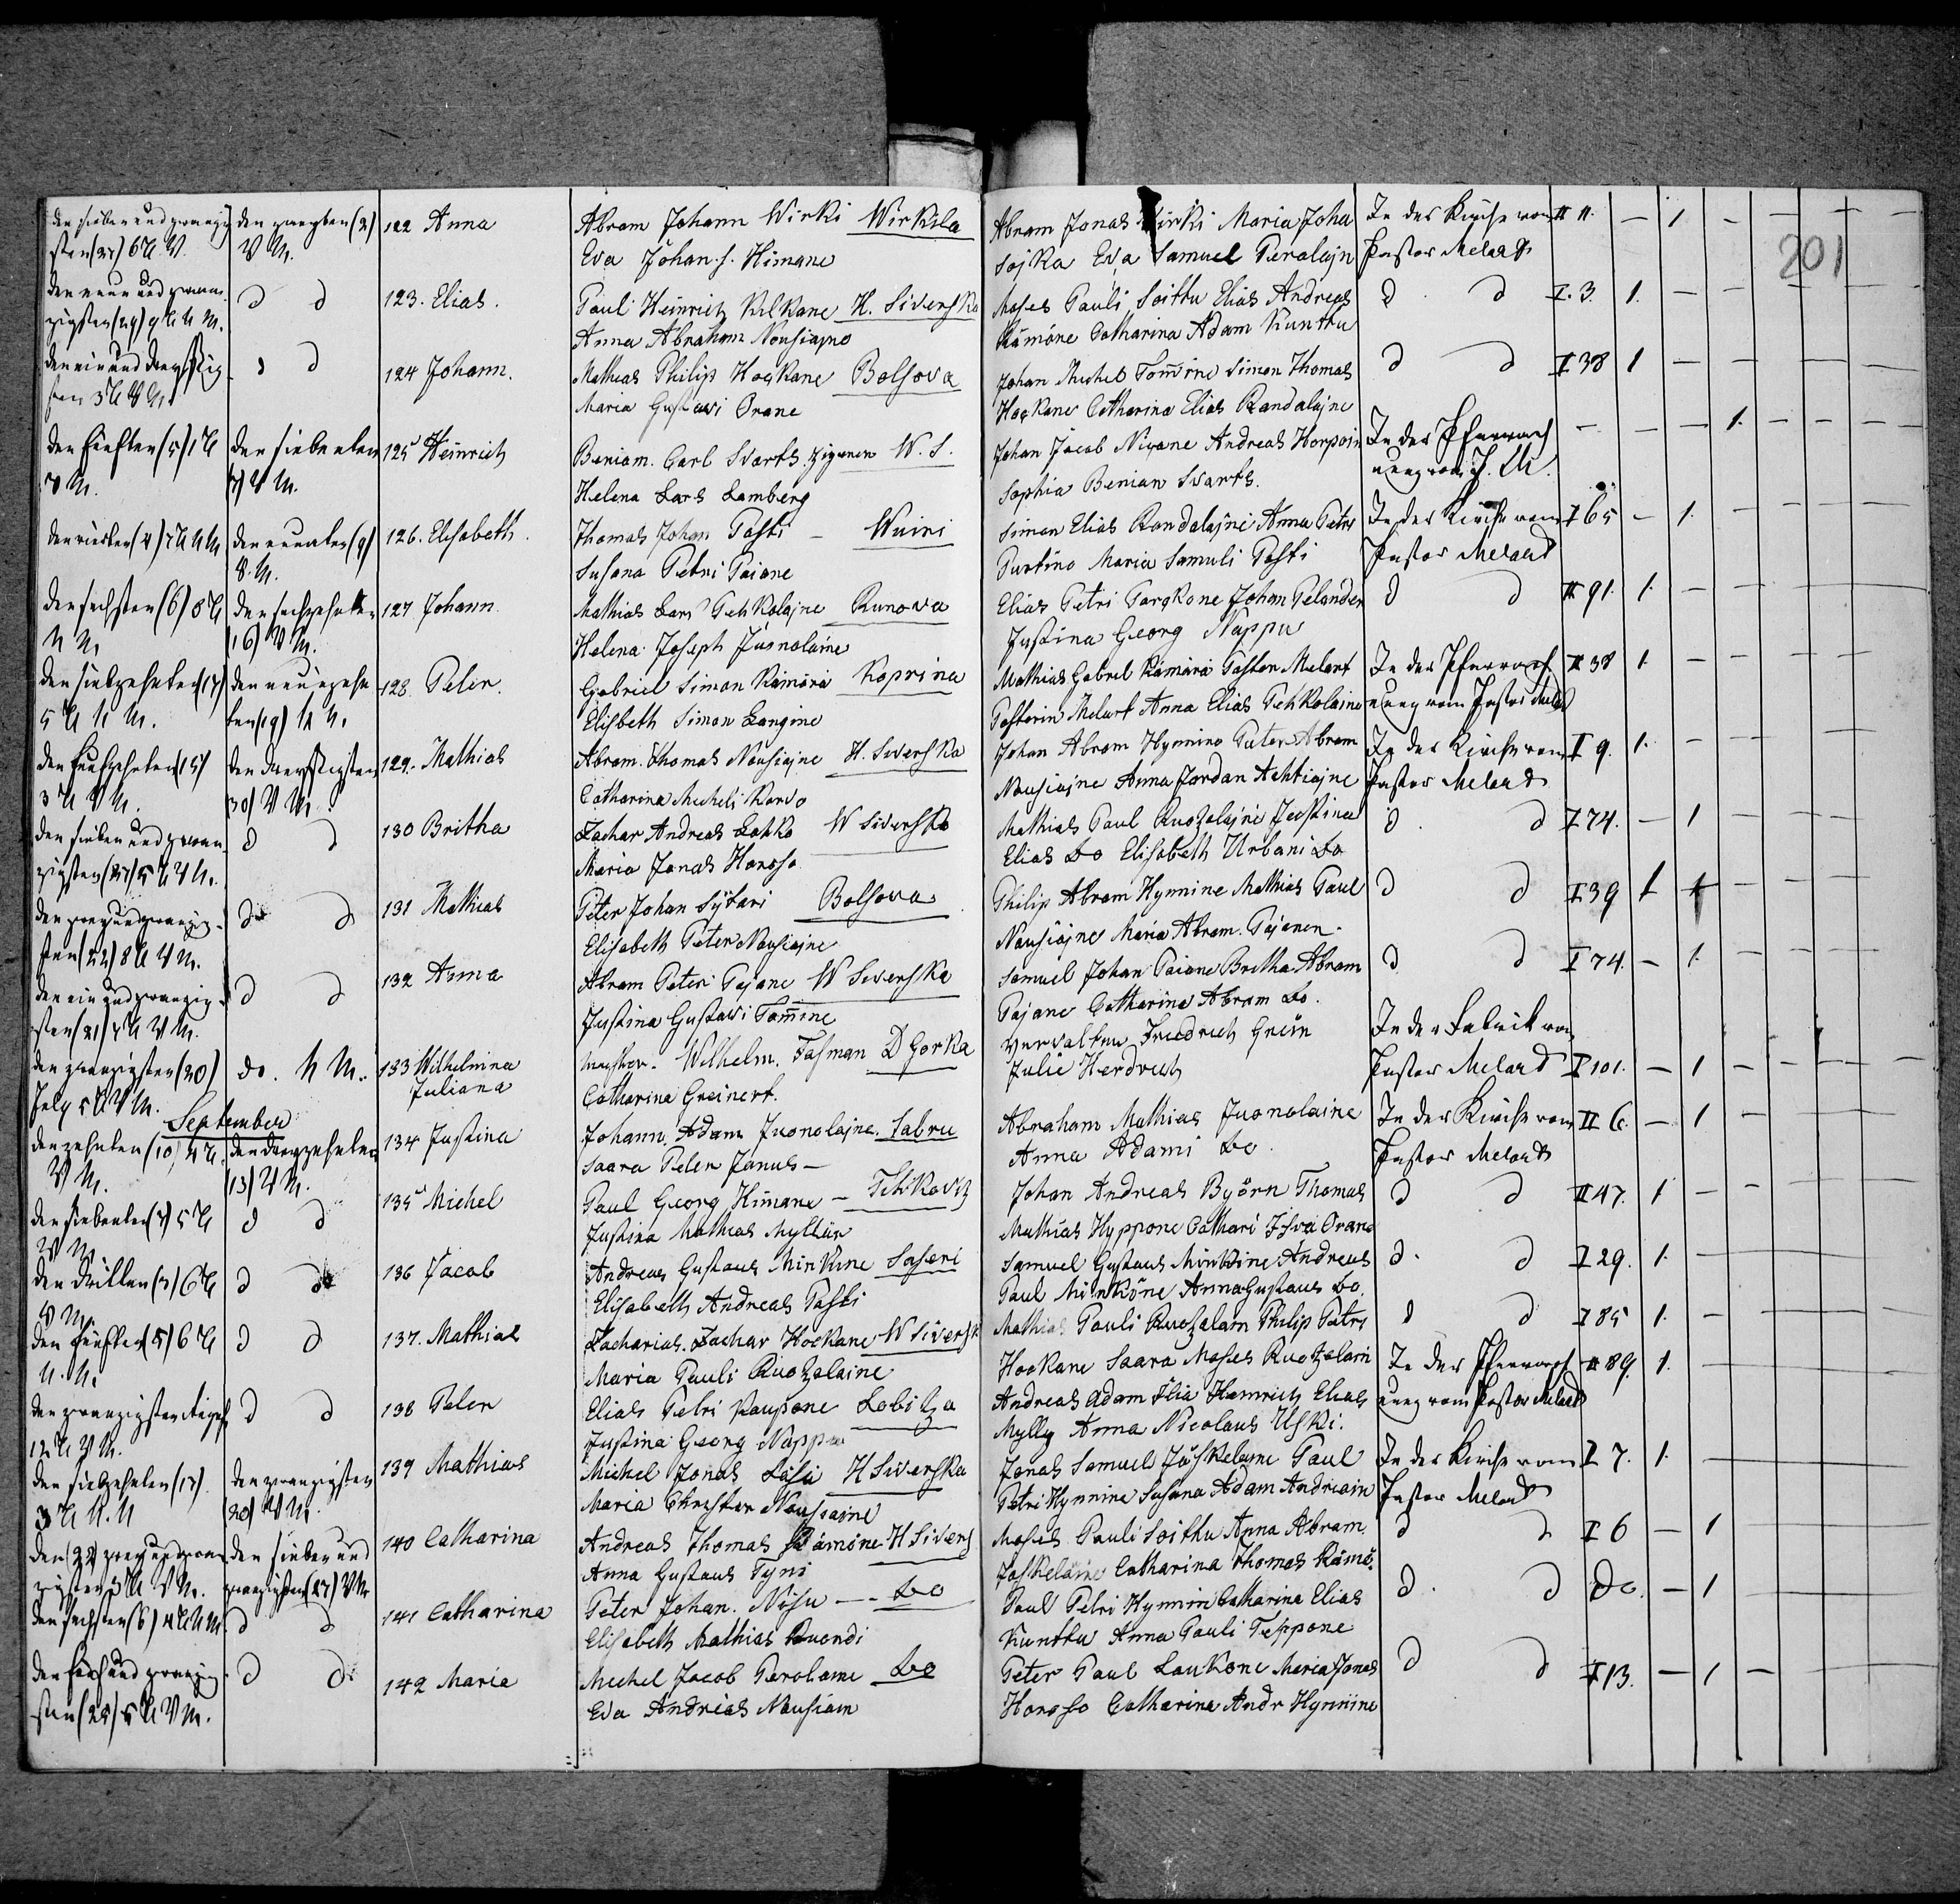 201
den sieben und zwanzig
sten (27) 6 U. V.
den zweyten (2)
V M.
122 Anna
Abram Johann Wirki Wirkila
Eva Johan.s. Himane
Abram Jonas Wirki Maria Joha
Sojka Eva Samuel Perolajn
In der Kirche vom
Pastor Melart
II 11. — 1 — — — —
den neun und zwan
zigsten (29) 9 U N M.
d d
123. Elias.
Paul Heinrich Kilkane H. Siverska
Anna Abraham Nousiajne
Moses Pauli Soittu Elias Andreas
Rämöne Catharina Adam Kunttu
d d
I. 3. 1. — — — — —
den ein und dreyssig
sten 3 U V M.
d d
124 Johann.
Mathias Philip Hockane Bolsova
Maria Gustavi Orane
Johan Michel Tom̄ine Simon Thomas
Hockane Catharina Elias Randalajne
d d
I 38 1 — — — — —
den fünften (5) 1 U
V M.
den siebenten
7) V M.
125 Heinrich
Beniam. Carl Svarts. Zigenen W. S.
Helena Lars Lamberg
Johan Jacob Nirane Andreas Horpoin
Sophia Benian Svarts.
— — — 1. — — —
den vierten (4) 7 U N M
den neunten (9)
V. M.
126. Elisabeth.
Thomas Johan Posti — Wuini
Susana Petri Paiane
Simon Elias Randalajne Anna Petri
Purtino Maria Samuli Posti
In der Kirche vom
Pastor Melart
I 65 — 1. — — — —
den sechsten (6) 8 U
N M.
den sechzehnten
16) V M.
127 Johann
Mathias Lars Pehkolajne Runova
Helena Joseph Juonolaine
Elias Petri Parckone Johan Pelander
Justina Georg Nappu
d d
II 91. 1. — — — —
den siebzehnten (17)
5 U N M.
den neunzehn
ten (19) N M.
128. Peter.
Gabriel Simon Rämärä Koprina
Elisbeth Simon Langine
Mathias Gabrel Rämärä Pastor Melart
Pastorin Melart Anna Elias Pehkolaine
II 38 1. — — — —
den funfzehnten (15)
3 U V M.
den dreyssigsten
30) V M.
129. Mathias
Abram. Thomas Nousiajne H. Siverska
Catharina Micheli Karvo
Johan Abram Hynnine Peter Abram
Nousiajne Anna Jordan Ahtiajne
In der Kirche vom
Pastor Melart
I 9. 1. — — — —
den sieben und zwan
zigsten (27) 5 U V M.
d d
130 Britha
Zachar Andreas Lokko W Siverska
Maria Jonas Honoso
Mathias Paul Ruozalajne Justina
Elias do Elisabeth Urbani do
d d
I 74. — 1 — — —
den zwey und zwanzig
sten (22) 8 U V M.
d d
131 Mathias
Peter Johan Sytari Bolsova
Elisabeth Peter Nousiajne
Philip Abram Hynnine Mathias Paul
Nousiajne Maria Abram. Pajanen.
d d
I 39 1 — — — —
den ein und zwanzig
sten (21) 7 U V M.
d d
132 Anna
Abram Peter Pajane W Siverska
Justina Gustavi Tom̄ine
Samuel Johan Paiane Britha Abram
Pajane Catharina Abram do.
d d
I 74. — 1. — — — —
den zwanzigsten (20)
July 5 U V M.
do. N M.
133 Wilhelmina
Juliana
Wilhelm. Tasman D Gorka
Catharina Greinert.
Verwalter Friedrich Grün
Julie Herdrich
In der Fabrik von
Pastor Melart
I 101. — 1 — — — —
September
den zehnten (10) 4 U.
V M.
den dreyzehnten
13) V M.
134 Justina
Johann. Adam Juonolajne. Sabru
Saara Peter Janus —
Abraham Mathias Juonolaine
Anna Adami do
In der Kirche vom
Pastor Melart
II 6. — 1 —
den siebenten (7) 5 U
V M
d d
135 Michel
Paul Georg Himane —
Justina Mathias Myllär
Johan Andreas Byörn Thomas
Mathias Hyppone
d d
II 47. 1 — —
den dritten (3) 6 U
V M.
d d
136 Jacob
Andreas Gustaus Minkine Saseri
Elisabeth Andreas Posti
Samuel Gustaus Minkine Andreas
Paul Minköne Anna Gustaus do.
d d
I 29. 1.
den fünften (5) 6 U
N. M.
d d
137. Mathias
Zacharias. Zachar Hockane W Siversk
Maria Pauli Ruozalaine
Mathias Pauli Ruozalain Philip Petri
Hockane Saara Moses Ruozalain
d d
I 85 1. —
den zwanzigsten
12 U V M.
d d
138 Peter
Elias Petri Paupone Lobitza
Justina Georg Nappu
Andreas Adam Ilia Heinrich Elias
Mylly Anna Nicolaus Uski.
II 89. 1.
den siebzehnten (17)
3 U N. M
den zwanzigsten
20) V M.
139 Mathias
Michel Jonas Läsi H Siverska
Maria Christer Nousiaine
Jonas Samuel Jäskelaine Paul
Petri Hynnine Susana Adam Andriain
In der Kirche vom
Pastor Melart
I 7. 1.
den (22) zwey und zwan
zigsten U V M.
den sieben und
zwanzigsten (27) V M
140 Catharina
Andreas Thomas Rämöne H Sivers
Anna Gustaus Tyni
Moses Pauli Soittu Anna Abram
Jaskeläine Catharina Thomas Rämö.
d d
I 6 — 1
den sechsten (6) 4 U N M
d d
141 Catharina
Peter Johan. Nisu — do
Elisabeth Mathias Ruondi
Paul Petri Hynnin Catharina Elias
Kunttu Anna Pauli Teppone
d d
do. — 1
den fünf und zwanzig
sten (25) 5 U V M.
d d
142 Maria
Michel Jacob Perolaine do
Eva Andrias Nousiain
Peter Paul Laukone Maria Jonas
Honoso Catharina Andr Hynnine
d d
I 13. — 1 —